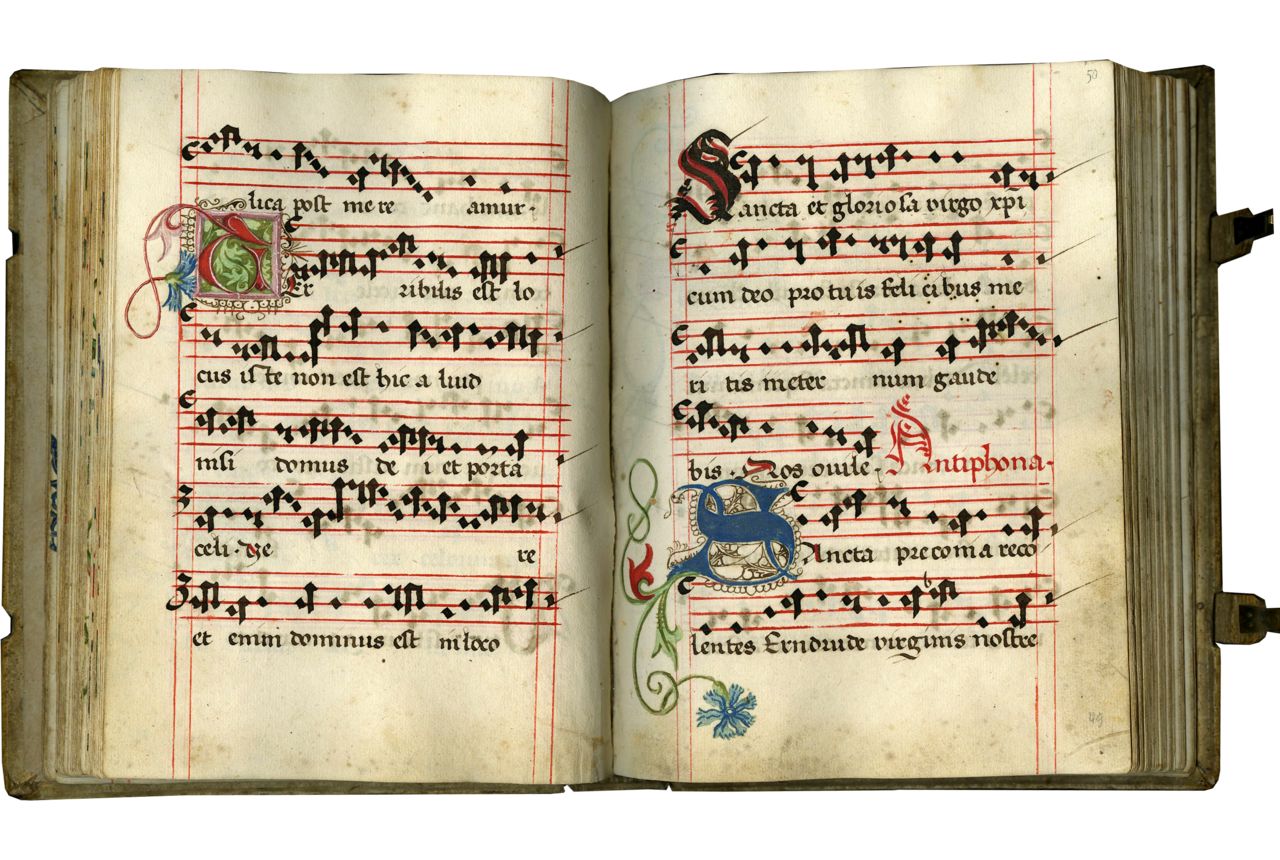 lica post mere amur.
Terribilis est lo
cus iste non est hic aliud
nisi domus dei et porta
celi. re
et enim dominus est in loco
50
Sancta et gloriosa virgo xpi
cum deo pro tuis felicibus me
ritis in eternum gaude
bis. Nos ovile. Antiphona.
Sancta preconia reco
lentes Erndrude virginis nostre
49